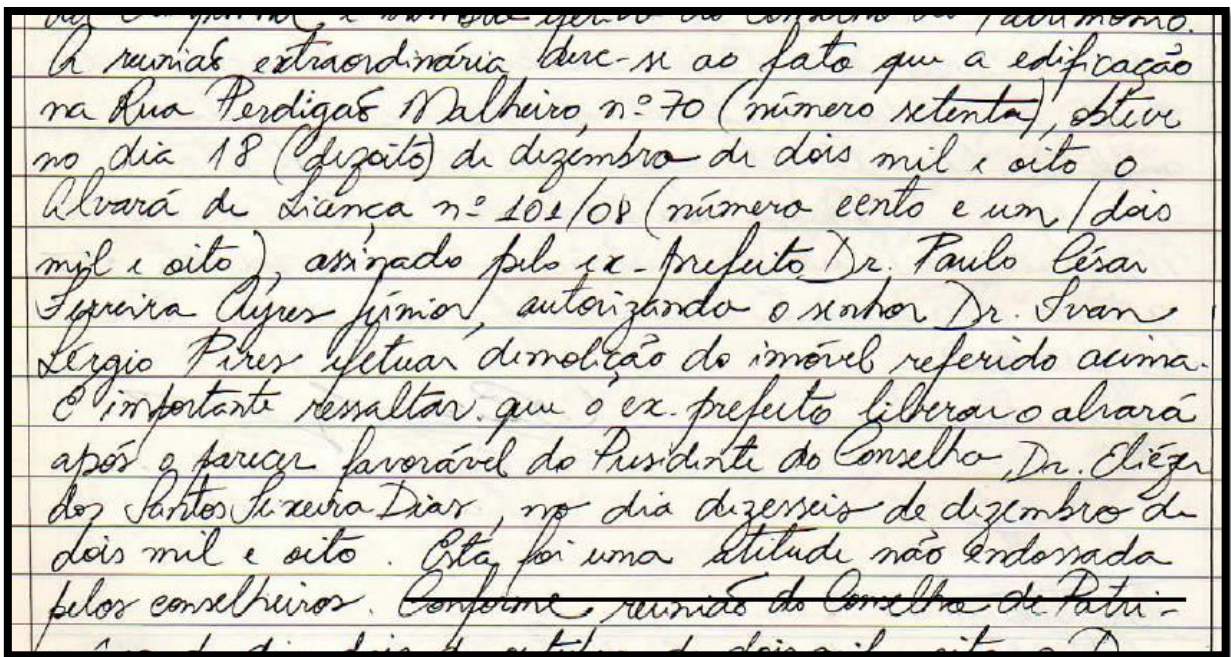 efetivo do Conselho do Patrimônio.
A reunião extraordinária deve-se ao fato que a edificação
na Rua Perdigão Malheiro, nº 70 (número setenta), obteve
no dia 18 (dezoito) de dezembro de dois mil e oito o
Alvará de Licença nº 101/08 (número cento e um / dois
mil e oito), assinado pelo ex-prefeito Dr. Paulo César
Ferreira Ayres Júnior, autorizando o senhor Dr. Ivan
Sérgio Pires efetuar demolição do imóvel referido acima.
É importante ressaltar que o ex. prefeito liberou o alvará
após o parecer favorável do Presidente do Conselho, Dr. Eliézer
dos Santos Teixeira Dias, no dia dezesseis de dezembro de
dois mil e oito. Esta foi uma atitude não endossada
pelos conselheiros. Conforme reunião do Conselho de Patri-